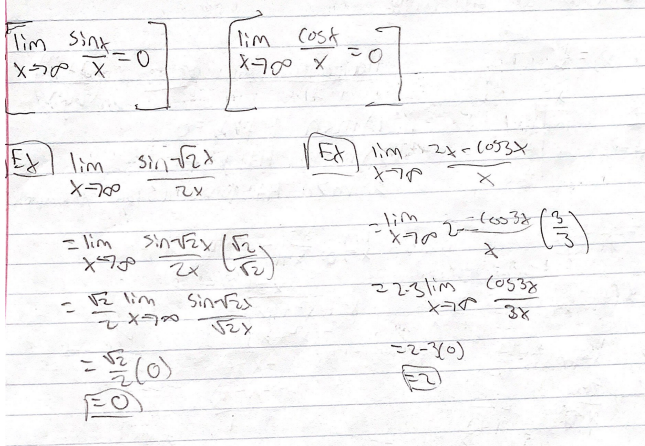 [lim x→∞ sinx/x = 0]
[lim x→∞ cosx/x = 0]
Ex lim x→∞ sin√2x/2x
= lim x→∞ sin√2x/2x (√2/√2)
= √2/2 lim x→∞ sin√2x/√2x
= √2/2 (0)
= 0
Ex lim x→∞ 2x - cos3x/x
= lim x→∞ 2 - cos3x/x (3/3)
= 2-3 lim x→∞ cos3x/3x
= 2-3(0)
= 2